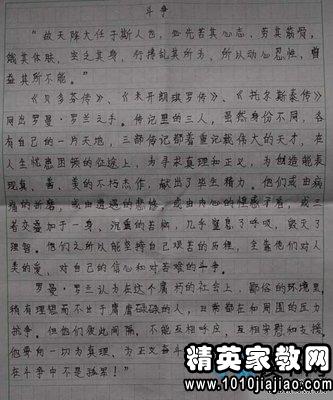 斗争
“故天降大任于斯人也，必先苦其心志，劳其筋骨，
饿其体肤，空乏其身，行拂乱其所为，所以动心忍性，曾
益其所不能。”
《贝多芬传》、《米开朗琪罗传》、《托尔斯泰传》
同出罗曼·罗兰之手。传记里的三人，虽然身份不同，各
有自己的一片天地，三部传记都着重记载伟大的天才，在
人生忧患困顿的征途上，为寻求真理和正义，为创造能表
现真、善、美的不朽杰作，献出了毕生精力。他们或由病
痛的折磨，或由遭遇的悲惨，或由内心的惶惑矛盾，或三
者交叠加于一身，沉重的苦恼，几乎窒息了呼吸，毁灭了
理智。他们之所以能坚持自己艰苦的历程，全靠他们对人
类的爱，对自己的信心和对苦难的斗争。
罗曼·罗兰认为在这个庸朽的社会上，鄙俗的环境里，
稍有理想而不出于庸庸碌碌的人，日常都在和周围的压力
抗争。但他们彼此间隔，不能互相呼应，互相安慰和支援
他要向一切为真理、为正义奋斗
在斗争中不是孤军！”
精英家教网
www.1010jiajiao.com